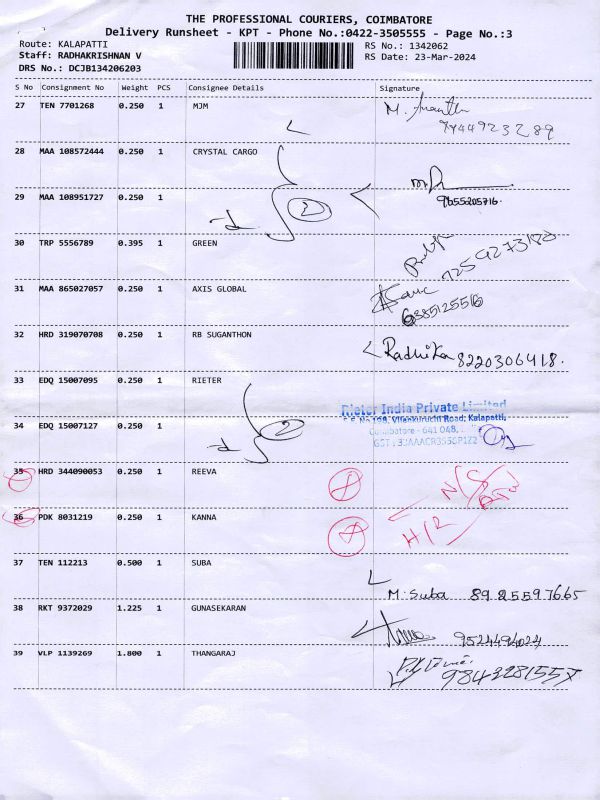 THE PROFESSIONAL COURIERS, COIMBATORE
Delivery Runsheet - KPT - Phone No.:0422-3505555 - Page No.:3
Route: KALAPATTI
RS No.: 1342062
Staff: RADHAKRISHNAN V
RS Date: 23-Mar-2024
DRS No.: DCJB134206203
S No Consignment No Weight PCS Consignee Details Signature
27 TEN 7701268 0.250 1 MJM
M.
9744923289
28 MAA 108572444 0.250 1 CRYSTAL CARGO
29 MAA 108951727 0.250 1
2
9655205716.
30 TRP 5556789 0.395 1 GREEN
31 MAA 865027057 0.250 1 AXIS GLOBAL
6385125516
32 HRD 319070708 0.250 1 RB SUGANTHON
Radhika 8220306418.
33 EDQ 15007095 0.250 1 RIETER
Rieter India Private Limited
34 EDQ 15007127 0.250 1
2
Vilankuruchi Road, Kalapatti,
Coimbatore - 641 048,
35 HRD 344090053 0.250 1 REEVA
N/S
36 PDK 8031219 0.250 1 KANNA
H/R
37 TEN 112213 0.500 1 SUBA
M. Suba 8925597665
38 RKT 9372029 1.225 1 GUNASEKARAN
9524494024
39 VLP 1139269 1.800 1 THANGARAJ